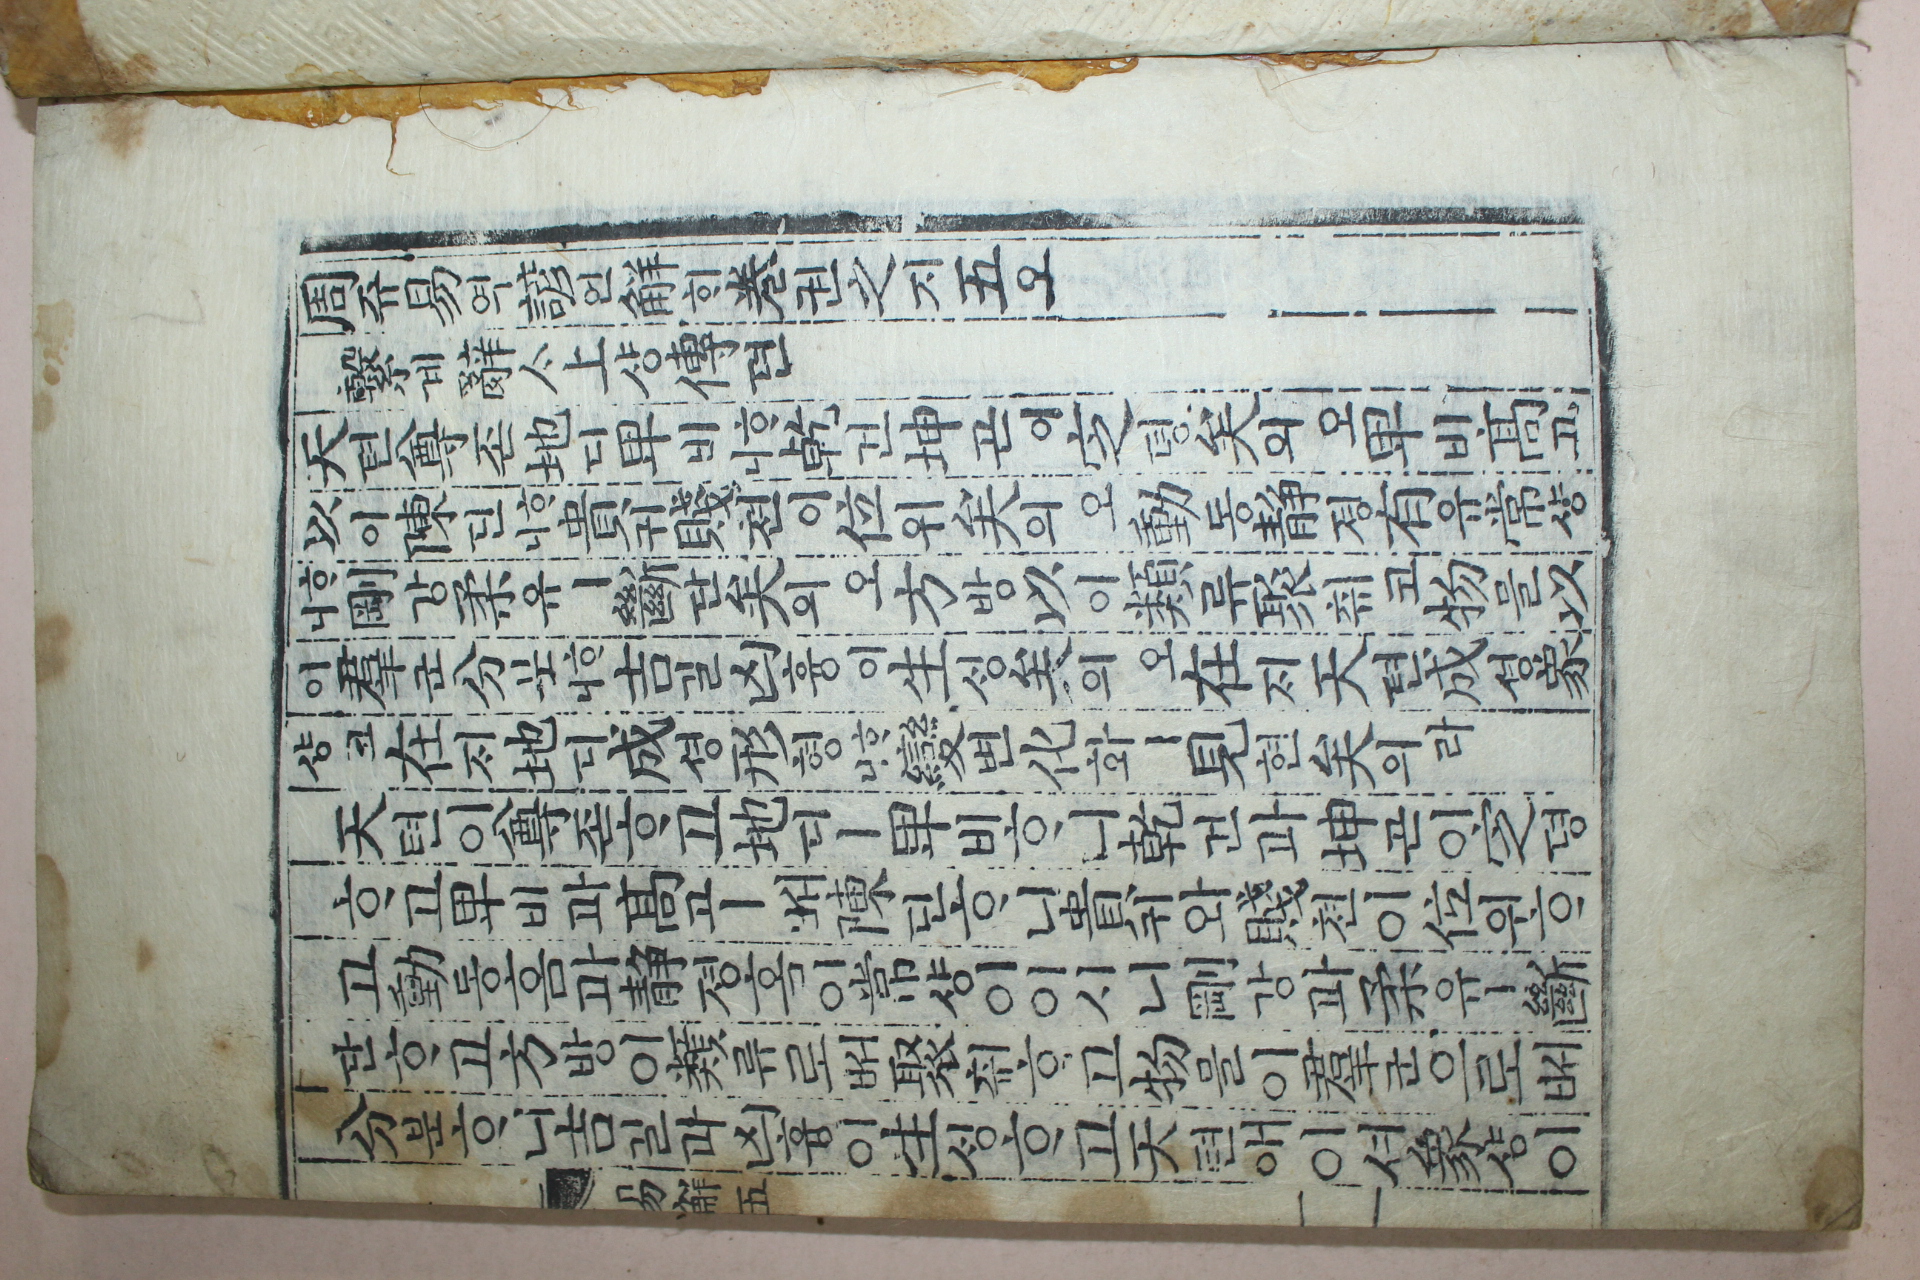 周쥬易역諺언解ᄒᆡ卷권之지五오
繫계辭ᄉᆞ上샹傳뎐
天텬尊존地디卑비ᄒᆞ니乾건坤곤이定뎡矣의오卑비高고
以이陳딘ᄒᆞ니貴귀賤쳔이位위矣의오動동靜졍有유常샹
ᄒᆞ니剛강柔유ㅣ斷단矣의오方방以이類류聚ᄎᆔ코物믈以
이羣군分분ᄒᆞ니吉길凶흉이生ᄉᆡᆼ矣의오在ᄌᆡ天텬成셩象
샹코在ᄌᆡ地디成셩形형ᄒᆞ니變변化화ㅣ見현矣의라
天텬이尊존ᄒᆞ고地디ㅣ卑비ᄒᆞ니乾건과坤곤이定뎡
ᄒᆞ고卑비과高고ㅣᄡᅥ陳딘ᄒᆞ니貴귀와賤쳔이位위ᄒᆞ
고動동홈과靜졍홈이常샹이이시니剛강과柔유ㅣ斷
단ᄒᆞ고方방이類류로ᄡᅥ聚ᄎᆔᄒᆞ고物믈이羣군으로ᄡᅥ
分분ᄒᆞ니吉길과凶흉이生ᄉᆡᆼᄒᆞ고天텬애이셔象샹이
易解五